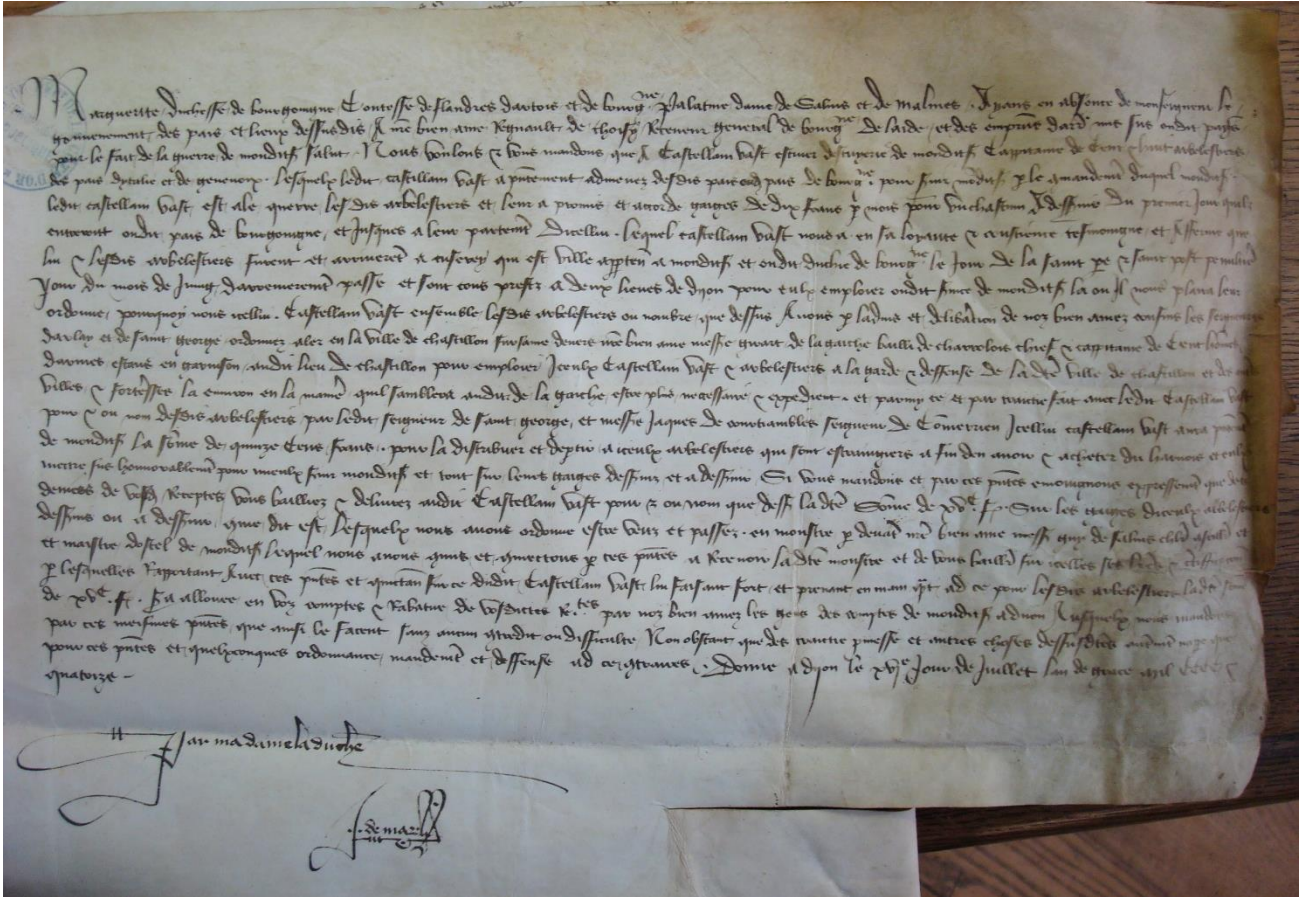 Marguerite duchesse de bourgoingne Contesse de flandres dartois et de bourgne palatine dame de Salins et de malines Ayans en absence de monseigneur le
gouvernement des pais et lieux dessusdis A nre bien ame Regnault de thoisy Receveur general de bourgne de laide et des empruns mis sus ondit pays
pour le fait de la guerre de mondit sr salut Nous voulons & vous mandons que A Castellain Vast escuier descuierie de mondit sr Cappitaine de Cent & huit arbelestriers
des pais dytalie et de genevois lesquelx ledit castellain Vast a pntement admenez desdis pais oudit pais de bourgne pour servir mondit sr p le commandemt duquel mondit sr
ledit castellain Vast est ale querre lesdis arbelestriers et leur a promis et accorde gaiges de dix frans p mois pour un chascun A desservir du premier Jour quilz
entreront ondit pais de bourgoingne et Jusques a leur partemt Dicellui lequel castellain Vast nous a en sa loyaute & conscience tesmoigne et Afferme que
lui & lesdis arbelestriers furent et arriveret a qui est ville apptent a mondit sr et ondit duchie de bourgne le Jour de la saint pe & saint pol penultieme
Jour du mois de Juing derrenieremt passe et sont tous prestz a deux lieues de dijon pour eulx emploier ondit service de mondit sr la ou Il nous plaira leur
ordonne pourquoy nous icellui Castellain Vast ensemble lesdis arbelestriers ou nombre que dessus Avons p ladvis et deliberacion de noz bien amez cousins les seigneurs
darlay et de saint george ordonnez alez en la ville de chastillon sur saine devers nre bien ame messire girart de la guiche bailli de charrolois chief & cappitaine de Cent hommes
darmes estans en garnison audit lieu de chastillon pour emploier Iceulx Castellain Vast & arbelestriers a la garde & deffense de la dte ville de chastillon et de
villes & forteresses la environ en la maniere quil semblera audit de la guiche estre plus necessaire & expedient et parmy ce et par traictie fait avec ledit Castellain Vast
pour & ou nom desdis arbelestriers par ledit seigneur de saint george et messire Jaques de courtiambles seigneur de Comerrien Icellui castellain Vast aura
de mondit sr la some de quinze Cens frans pour la distribuer et deptir a iceulx arbelestriers qui sont estrangiers a fin den avoir & acheter du harnois et
mettre sus honnorablemt pour mieulx servir mondit sr et tout sur leurs gaiges desserviz et a desservir Si vous mandons et par ces pntes enjoignons expressemt que des
deniers de vosd Receptes vous bailliez & delivrez audit Castellain Vast pour & ou nom que dess la dte Some de xvc fr Sur les gaiges diceulx arbelestriers
desservis ou a desservir que dit est lesquelx nous avons ordonne estre veuz et passez en monstre p devat nre bien ame messire guy de salins chlr
et maistre dostel de mondit sr lequel nous avons comis et commettons p ces pntes a Recevoir la dte monstre et de vous baillier sur icelles ses lettres & certifficacion
p lesquelles Rapportant Avec ces pntes et quictan sur ce dudit Castellain Vast lui faisant fort et prenant en main qt ad ce pour lesdis arbelestriers ladte some
de xvc fr Sera allouee en voz comptes & Rabatue de vosdictes Rtes par noz bien amez les gens des comptes de mondit sr a dijon Ausquelx nous mandons
par ces meismes pntes que ainsi le facent sanz aucun contredit ou difficulte Non obstant que des traictie pmesse et autres choses dessusdtes
pour ces pntes et quelxconques ordonnance mandemt et deffense ad ce contraires Donne a dijon le xvje Jour de Juillet lan de grace mil cccc &
quatorze
Par madame la duche